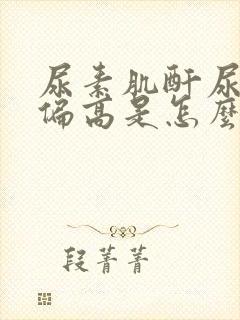 尿素肌酐尿
偏高是怎麼
段菁菁